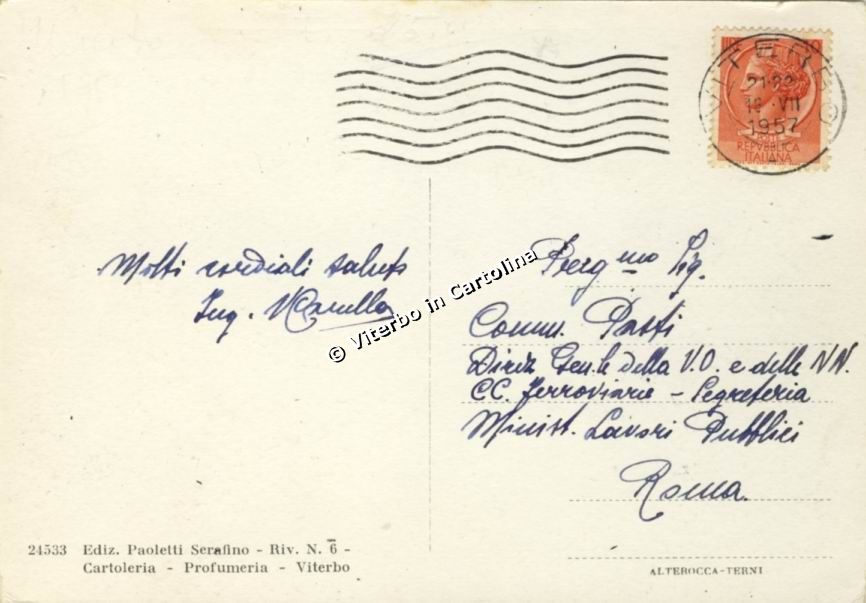 VITERBO
21-22
VII
1957
REPVBBLICA
ITALIANA
Molti cordiali saluti
Ing.
Preg.mo Sig.
Comm. Pasti
Direz Gen.le della V.O. e delle NN.
CC. Ferroviarie - Segreteria
Minist. Lavori Pubblici
Roma.
© Viterbo in Cartolina
24533 Ediz. Paoletti Serafino - Riv. N. 6 -
Cartoleria - Profumeria - Viterbo
ALTEROCCA-TERNI